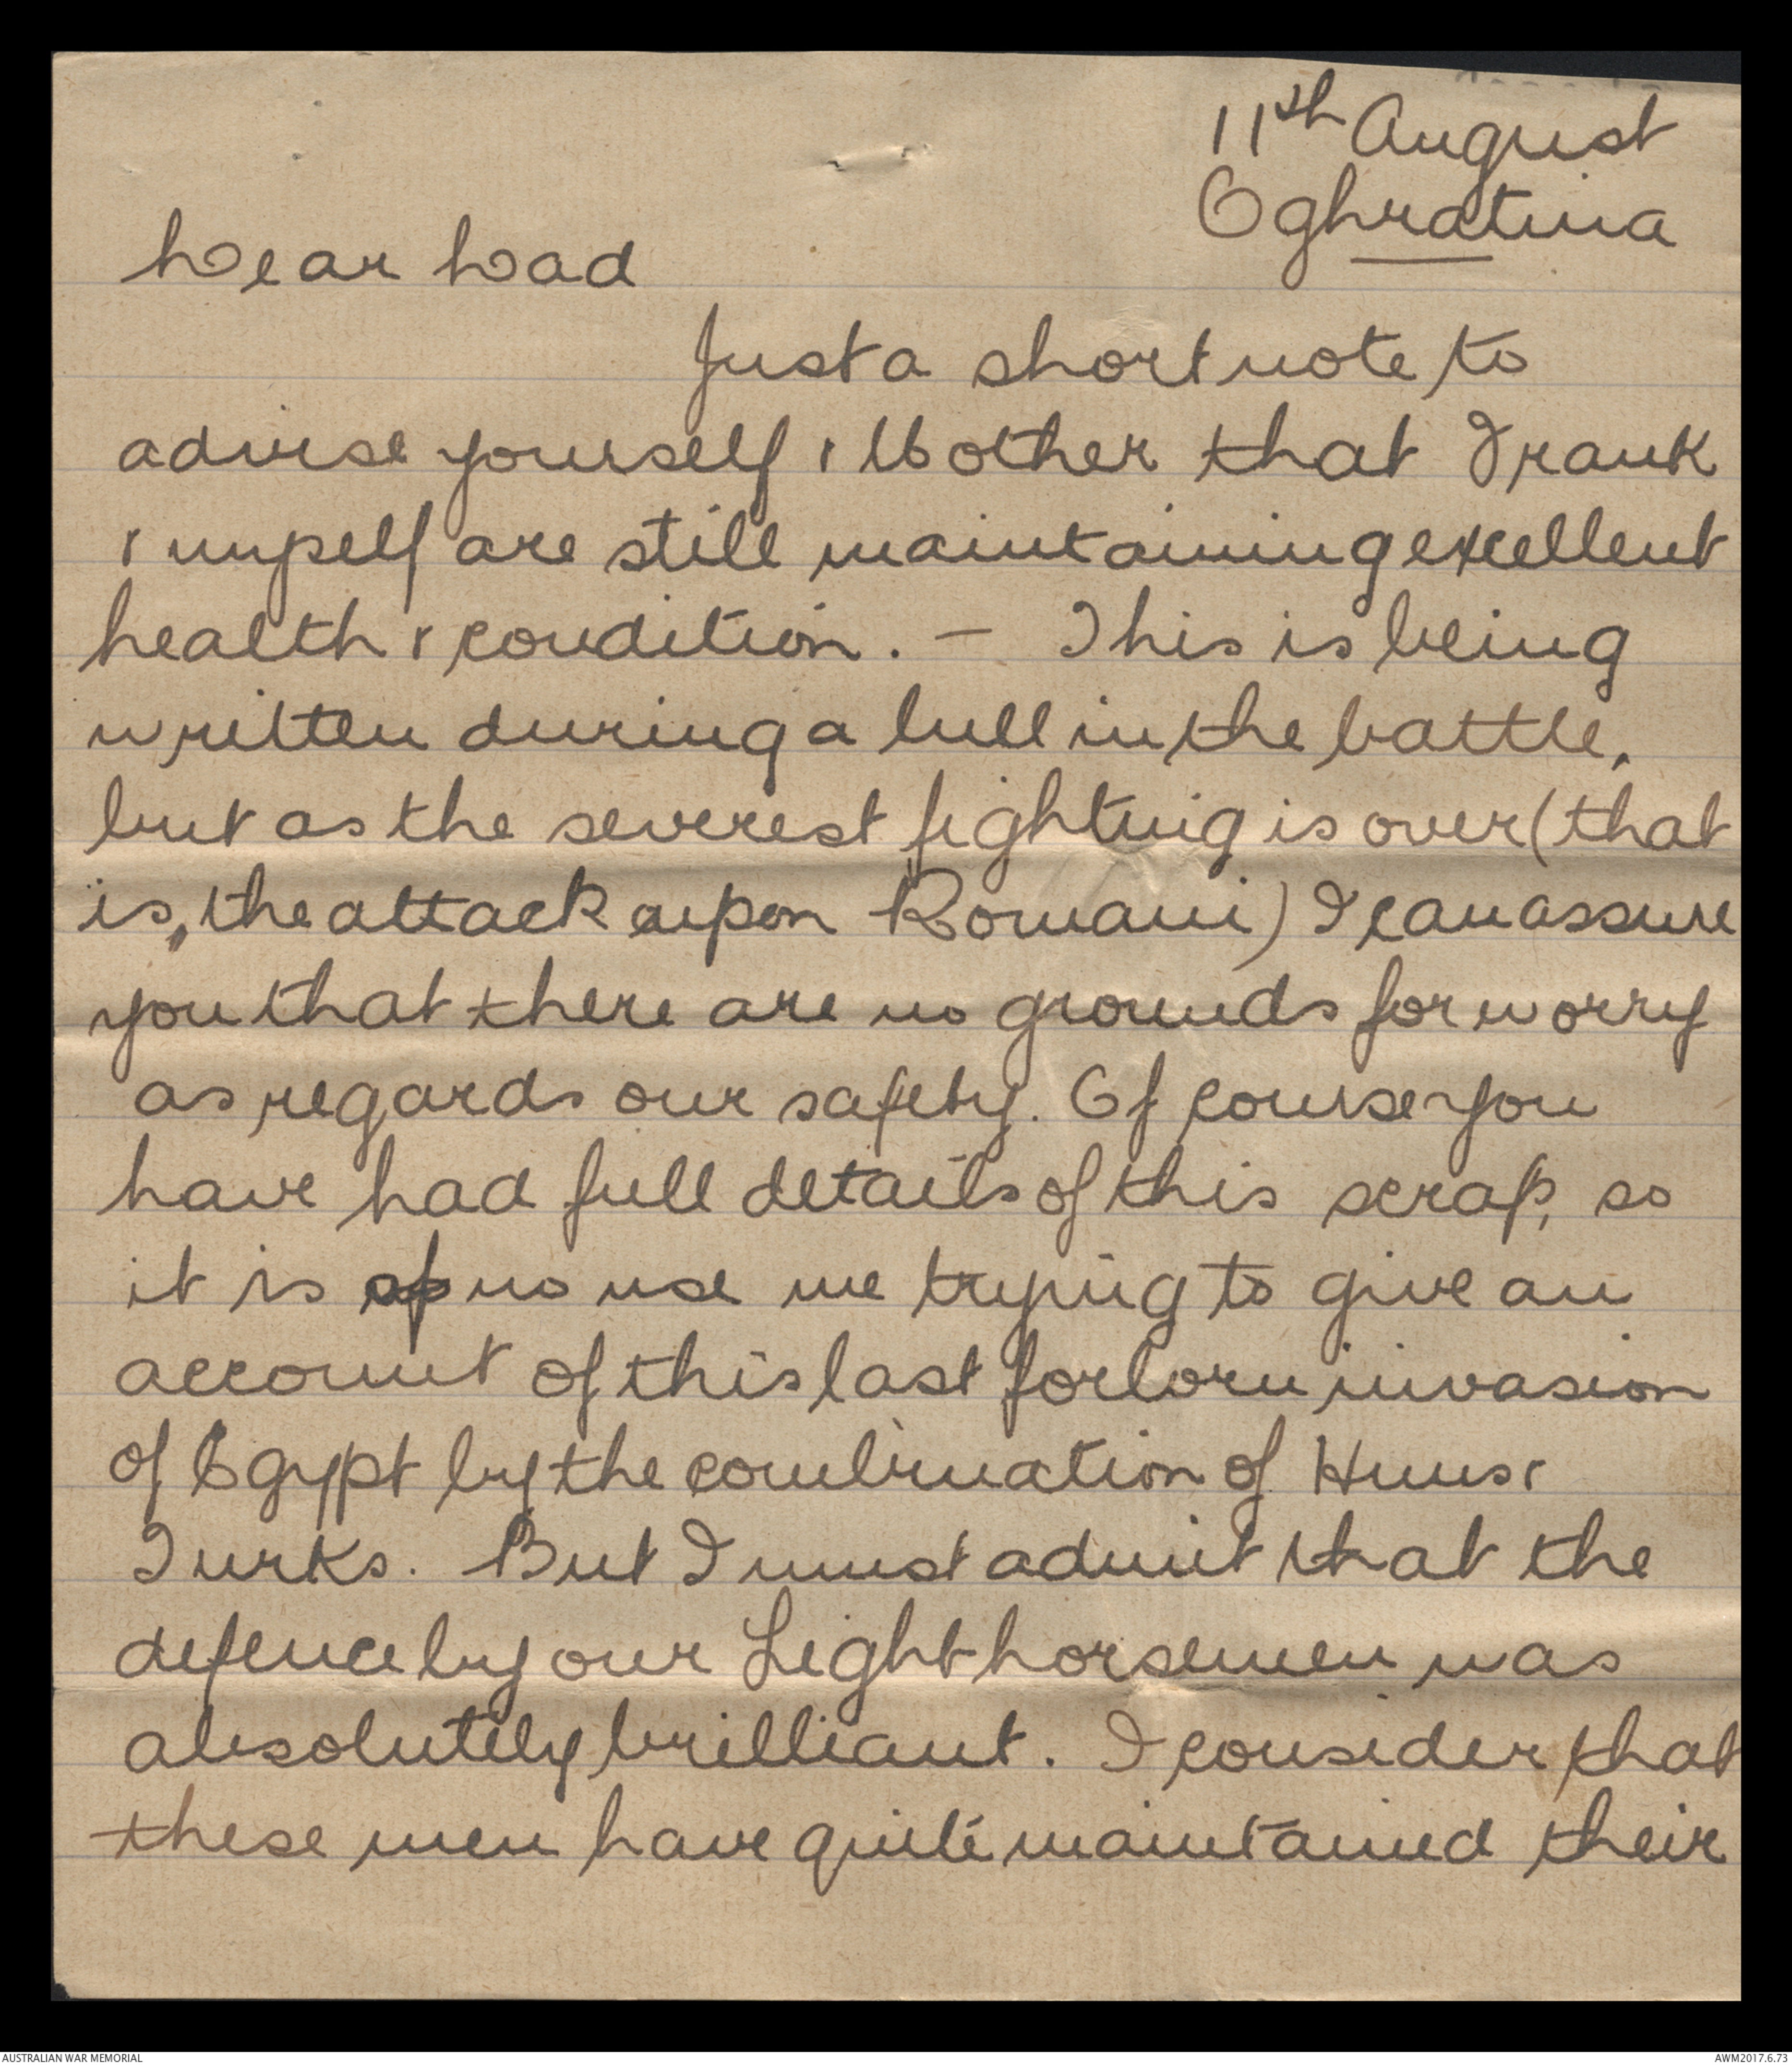 11th August
Oghratina
Dear Dad
Just a short note to
advise yourself & Mother that Frank
& myself are still maintaining excellent
health & condition. – This is being
written during a lull in the battle,
but as the severest fighting is over (that
is, the attack upon Romani) I can assure
you that there are no grounds for worry
as regards our safety. Of course you
have had full details of this scrap, so
it is of no use me trying to give an
account of this last forlorn invasion
of Egypt by the combination of Huns &
Turks. But I must admit that the
defence by our Lighthorsemen was
absolutely brilliant. I consider that
these men have quite maintained their
AUSTRALIAN WAR MEMORIAL
AWM2017.6.73